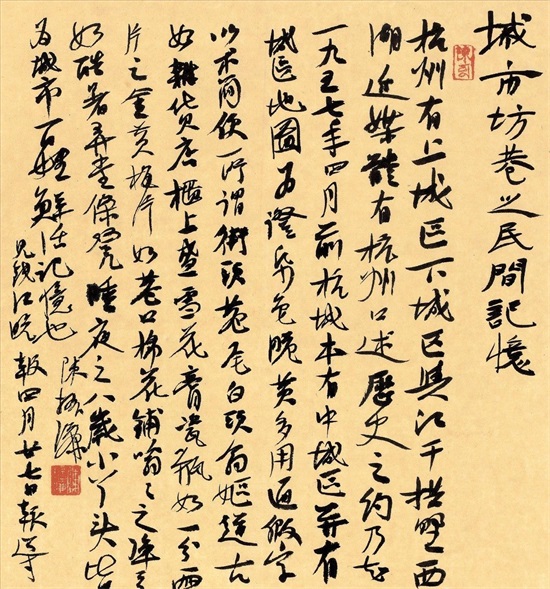 城市坊巷之民間記憶
杭州有上城區下城區與江干拱墅西
湖近媒體有杭州口述歷史之約乃知
一九五七年四月前杭城本有中城區並有
城區地圖為證紙色脆黃多用通假字
以不简便所謂街頭巷尾白頭翁嫗述古
如雜貨店櫃上盛雪花膏瓷瓶如一分兩
片之金黃梅片如巷口棉花鋪嗡嗡之
如酷暑弄堂條凳睡夜之八歲小丫頭
為城市百姓鮮活記憶也 陳
見錢江晚報四月廿七日報導